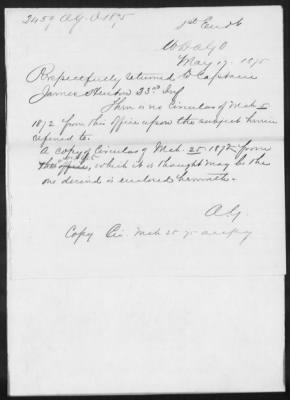 2459 A.G.O. 1875
1st Endt
W.D. A.G.O.
May 17. 1875
Respectfully returned to Captain
James 23d Inf
There is no Circular of Mch
1872 from this Office upon the subject herein
referred to.
A copy of Circular of Mch. 25 1875 from
this office, which it is thought may be the
one desired is enclosed herewith.
A.G.
Copy Cir. Mch 25 75